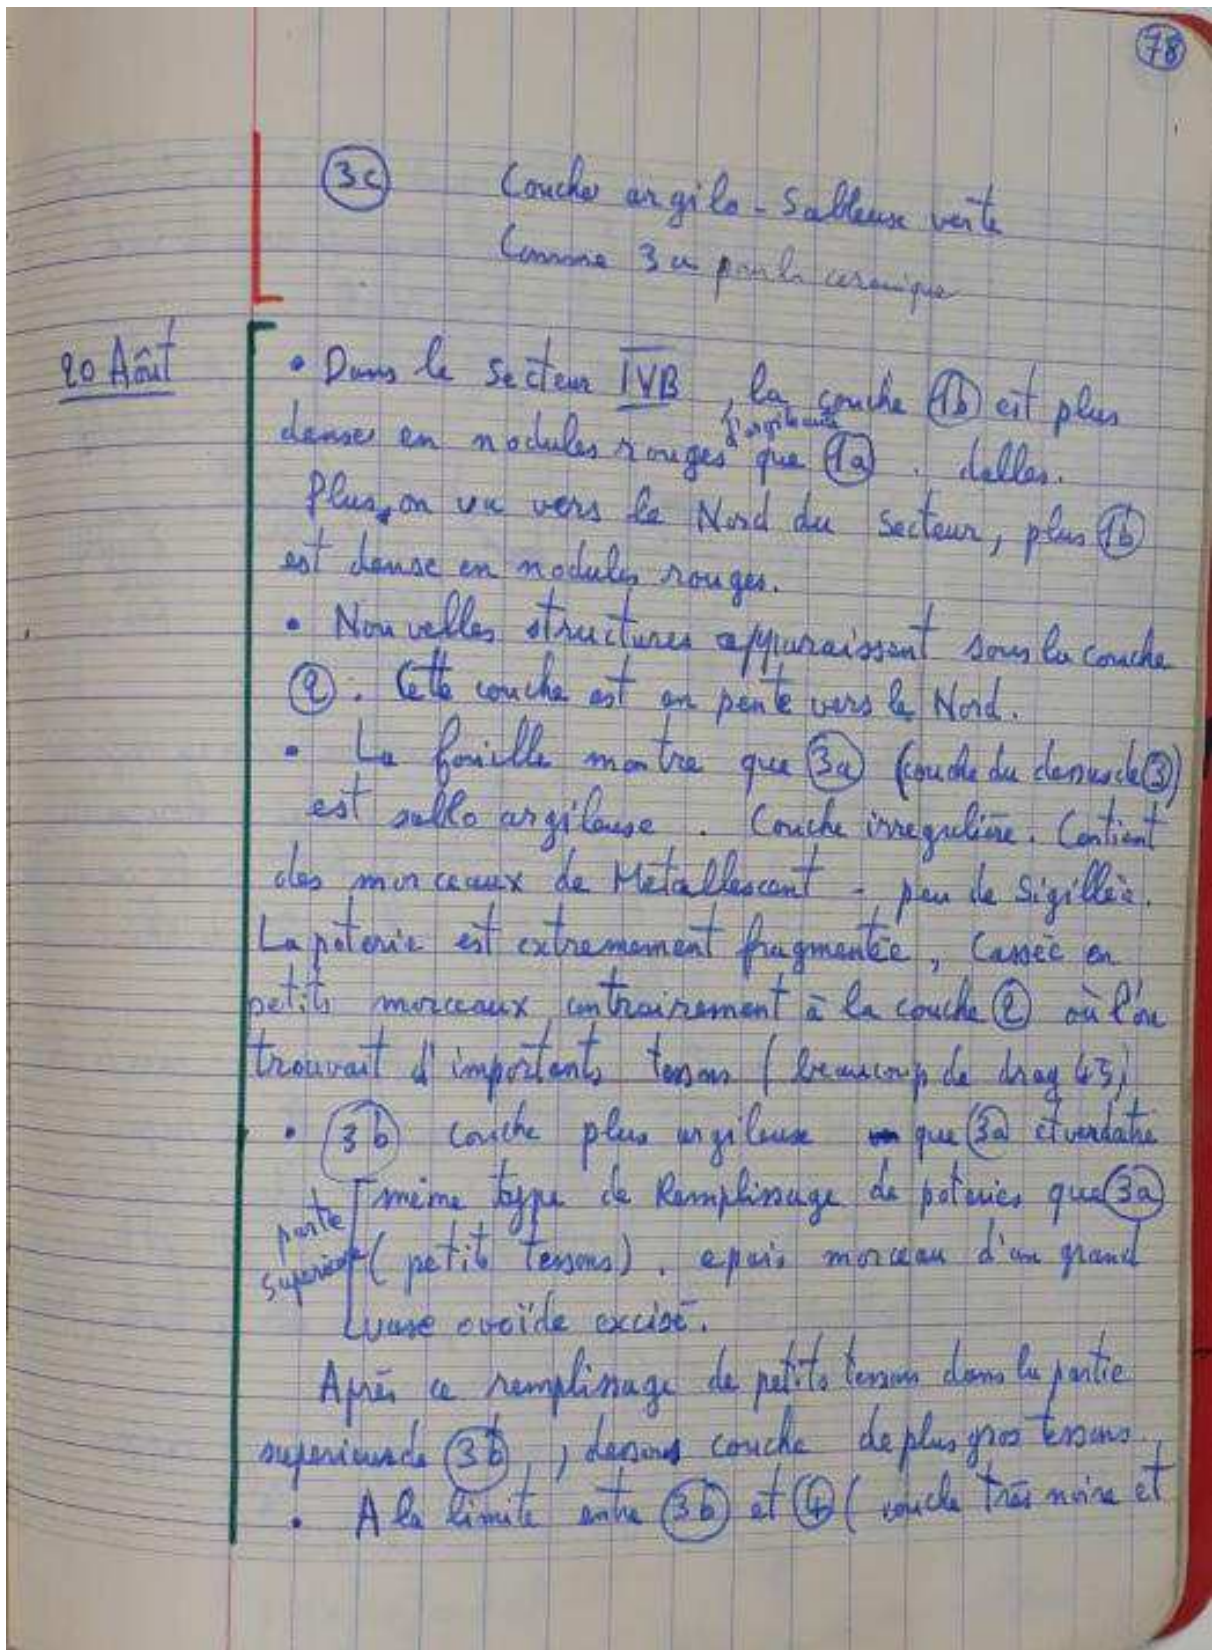 78
3c Couche argilo-Sableuse verte
Comme 3a pour la ceramique
20 Août
• Dans le Secteur IVB, la couche 1b est plus
d'argile cuite
dense en nodules rouges que 1a. dalles.
Plus, on va vers le Nord du Secteur, plus 1b
est dense en nodules rouges.
• Nouvelles structures apparaissent sous la couche
2. Cette couche est en pente vers le Nord.
• La fouille montre que 3a (couche du dessus de 3)
est sablo argileuse. Couche irregulière. Contient
des morceaux de Metallescent - peu de Sigillée.
La poterie est extremement fragmentée, Cassée en
petits morceaux contrairement à la couche 2 où l'on
trouvait d'importants tessons (beaucoup de drag 45)
• 3b couche plus argileuse que 3a et verdatre
même type de Remplissage de poteries que 3a
partie
superieure
(petits tessons). epais morceau d'un grand
vase ovoïde excisé.
Après ce remplissage de petits tessons dans la partie
superieure de 3b, dessous couche de plus gros tessons.
• A la limite entre 3b et 4 (couche très noire et